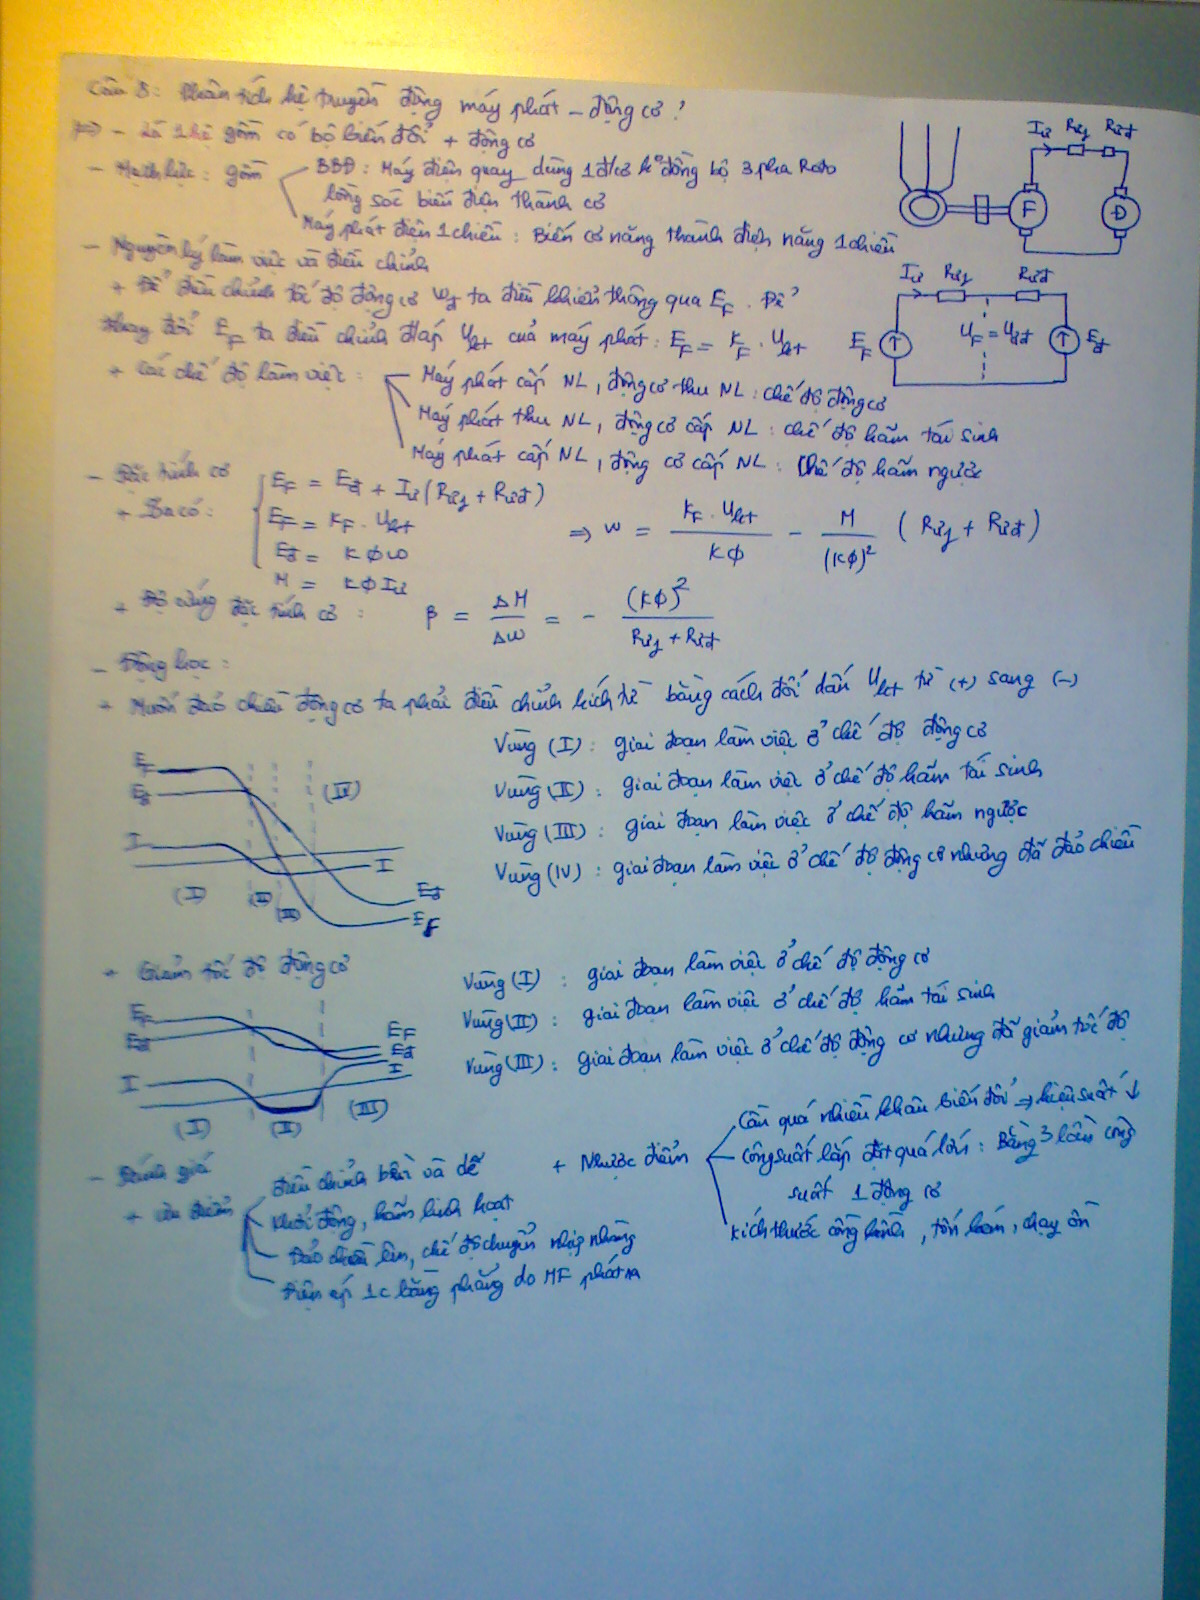 Câu 8: Phân tích hệ truyền động máy phát – động cơ?
=> - Là 1 hệ gồm có bộ biến đổi + động cơ
- Mạch lực: gồm
BBĐ: Máy điện quay dùng 1 đ/cơ kº đồng bộ 3 pha Roto
lồng sóc biến điện thành cơ
Máy phát điện 1 chiều: Biến cơ năng thành điện năng 1 chiều
Iư Rư1 Rưđ
F Đ
- Nguyên lý làm việc và điều chỉnh
+ Để điều chỉnh tốc độ động cơ ωđ ta điều khiển thông qua EF. Để
thay đổi EF ta điều chỉnh đ/áp Ukt của máy phát: EF = KF . Ukt
Iư Rư1 Rưđ
EF UF = Uưđ Eđ
+ Các chế độ làm việc:
Máy phát cấp NL, động cơ thu NL: chế độ động cơ
Máy phát thu NL, động cơ cấp NL: chế độ hãm tái sinh
Máy phát cấp NL, động cơ cấp NL: chế độ hãm ngược
- Đặc tính cơ
+ Ta có:
EF = Eđ + Iư(Rư1 + Rưđ)
EF = KF . Ukt
Eđ = KΦω
M = KΦIư
=> ω = KF . Ukt / KΦ - M / (KΦ)² (Rư1 + Rưđ)
+ Độ cứng đặc tính cơ: β = ΔM / Δω = - (KΦ)² / Rư1 + Rưđ
- Động học:
+ Muốn đảo chiều động cơ ta phải điều chỉnh kích từ bằng cách đổi dấu Ukt từ (+) sang (-)
EF
Eđ
I
(IV)
I
(I) (II) (III)
Eđ
EF
Vùng (I): giai đoạn làm việc ở chế độ động cơ
Vùng (II): giai đoạn làm việc ở chế độ hãm tái sinh
Vùng (III): giai đoạn làm việc ở chế độ hãm ngược
Vùng (IV): giai đoạn làm việc ở chế độ động cơ nhưng đã đảo chiều
+ Giảm tốc độ động cơ
EF
Eđ
I
EF
Eđ
I
(I) (II) (III)
Vùng (I): giai đoạn làm việc ở chế độ động cơ
Vùng (II): giai đoạn làm việc ở chế độ hãm tái sinh
Vùng (III): giai đoạn làm việc ở chế độ động cơ nhưng đã giảm tốc độ
- Đánh giá
+ Ưu điểm
điều chỉnh bền và dễ
khởi động, hãm linh hoạt
Đảo chiều lên, chế độ chuyển nhịp nhàng
Điện áp 1c bằng phẳng do MF phát ra
+ Nhược điểm
Cần quá nhiều khâu biến đổi => hiệu suất ↓
công suất lắp đặt quá lớn: Bằng 3 lần công
suất 1 động cơ
kích thước cồng kềnh, tốn kém, chạy ồn